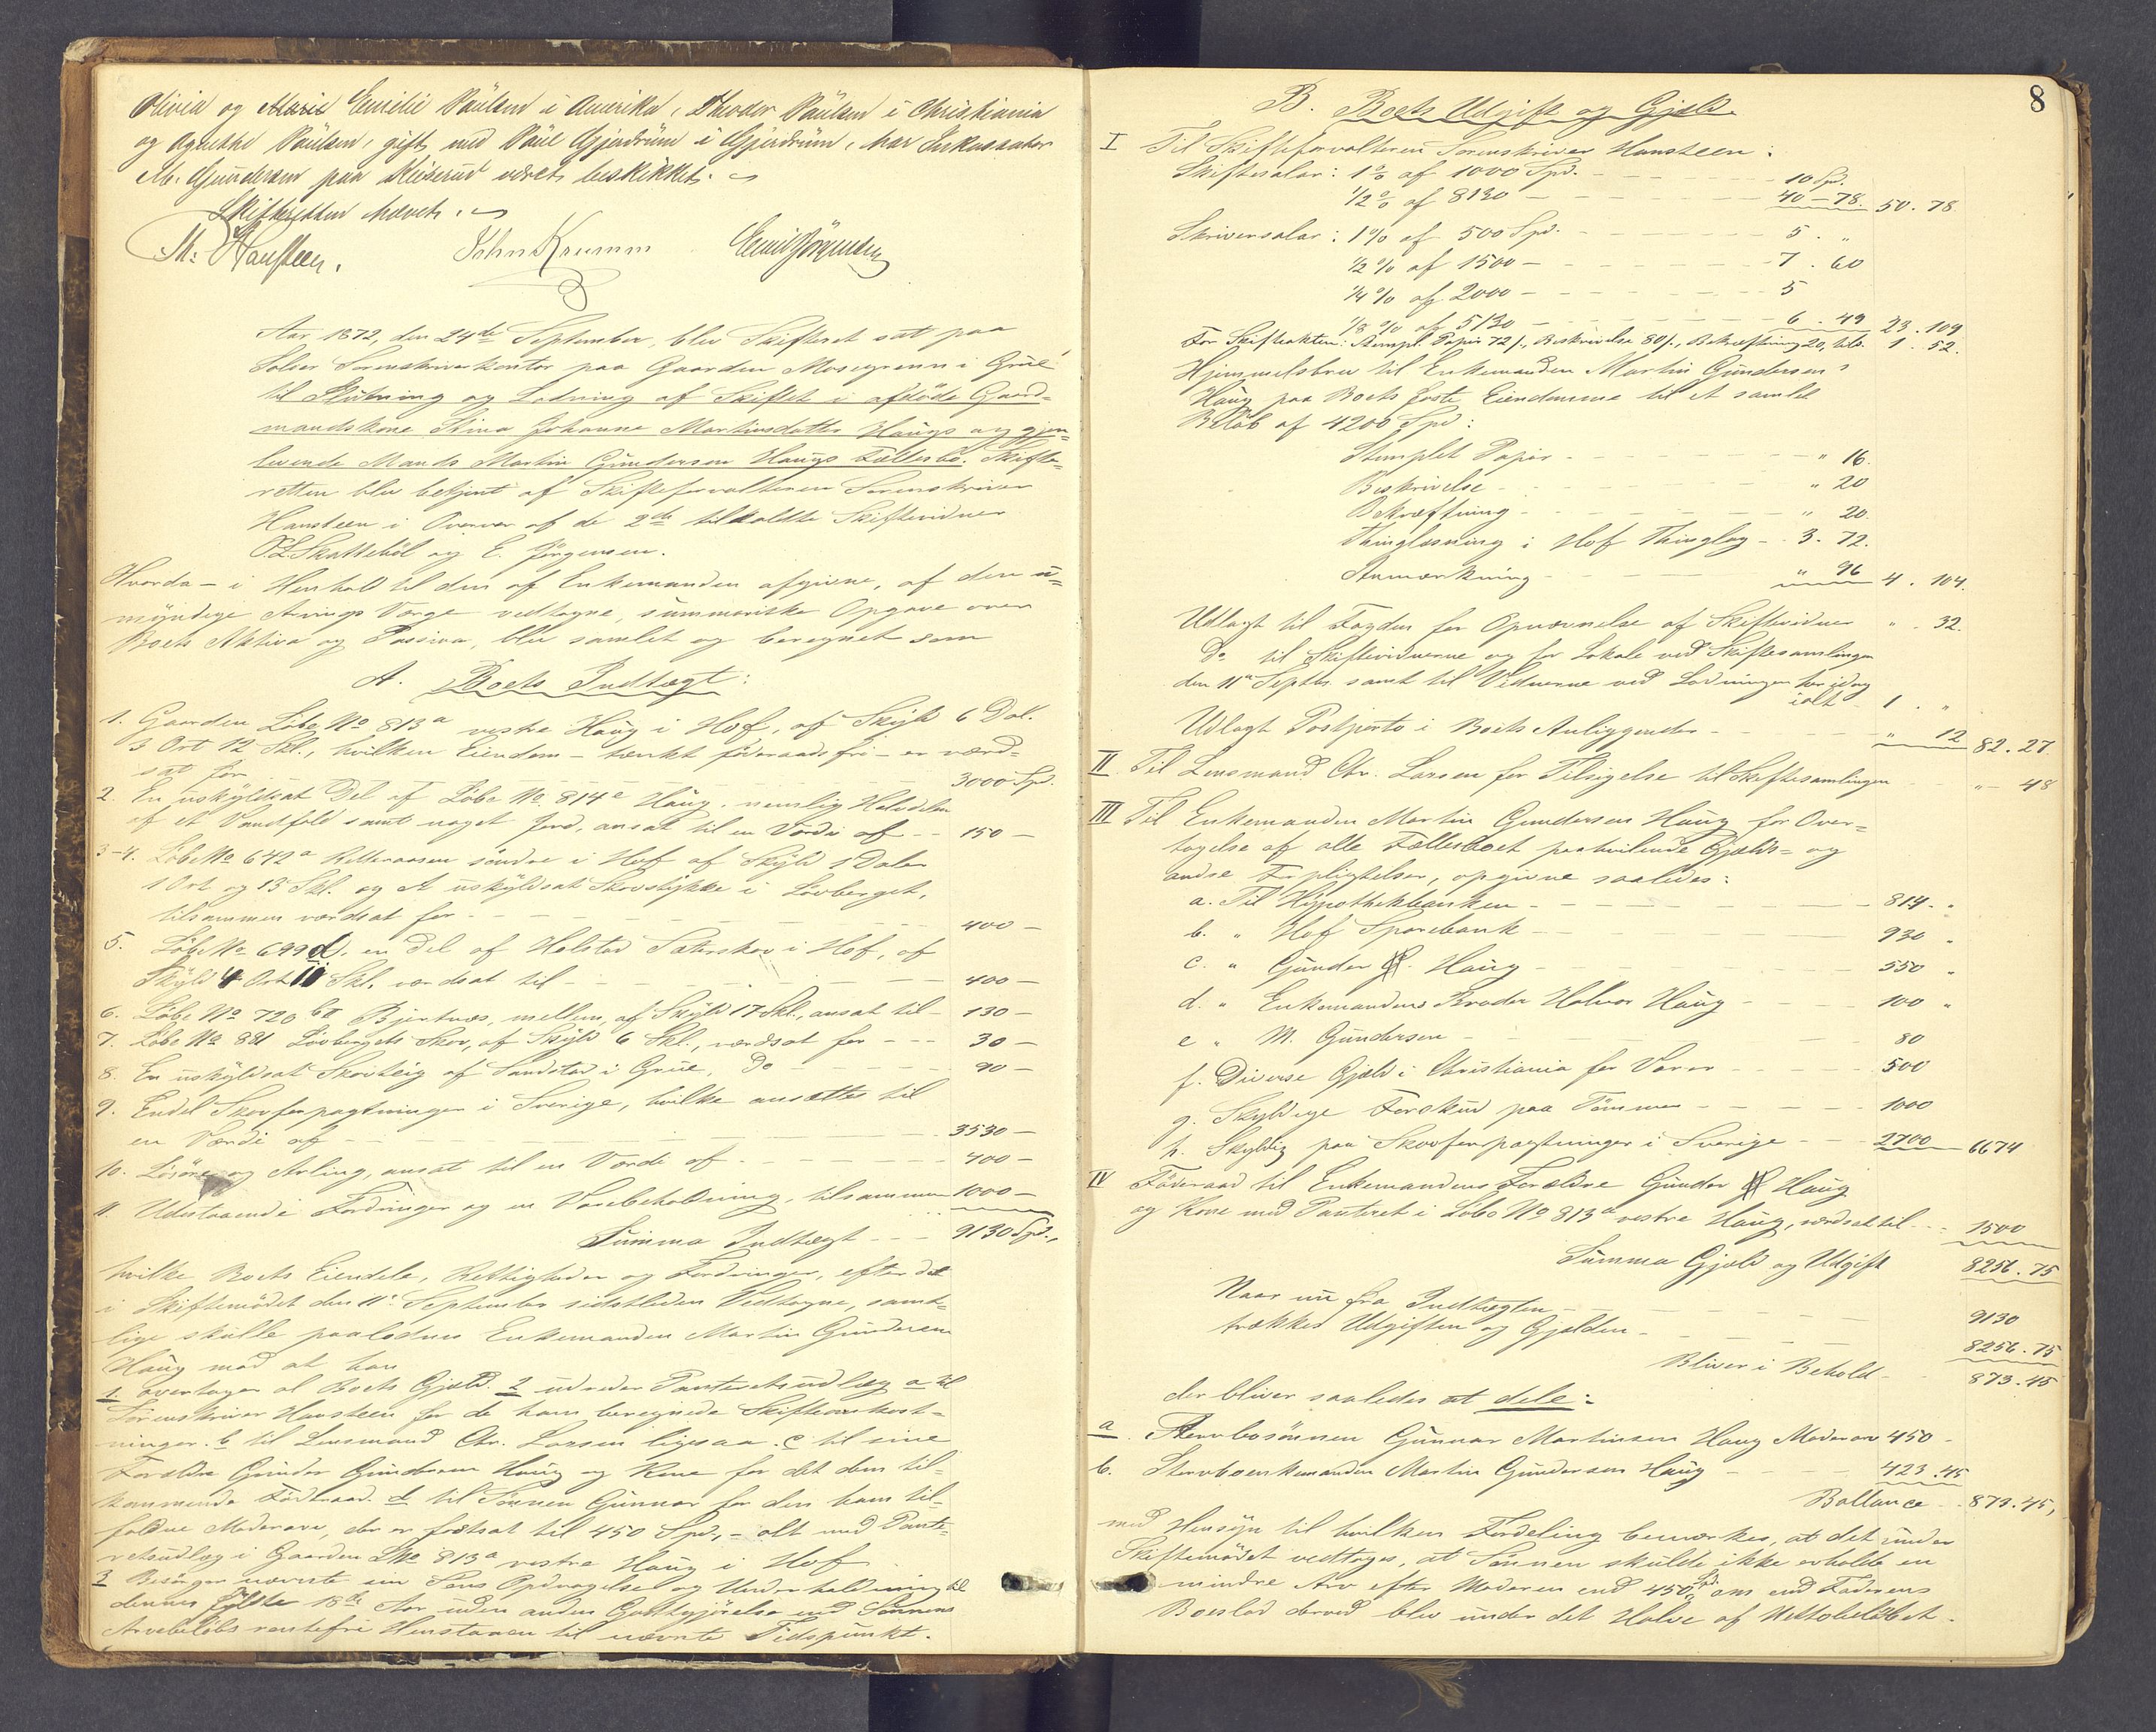 Olivia og Marie Emilie Paulsen i Amerika, Theodor Paulsen i Christiania
og Agnethe Paulsen, gift med Paul Gjerdrum i Gjerdrum, har Inkassator
M. Gundersen paa været beskikket.
Skifteretten hævet.
M: Hansteen. John Krumm Emil Jörgensen
Aar 1872, den 24de September, blev Skifteret sat paa
Solør Sorenskriverkontor paa Gaarden Mosegrenn i Grue
til Slutning og Lodning af Skiftet i afdøde Gaard-
mandskone Stina Johanne Martinsdatter Haugs og gjen-
levende Mands Martin Gundersen Haugs Fællesbo. Skifte-
retten blev betjent af Skifteforvalteren Sorenskriver
Hansteen i Overvær af de 2de tilkaldte Skiftevidner
O. L. Skattebøl og E. Jörgensen.
Hvorda - i Henhold til den af Enkemanden afgivne, af den u-
myndige Arvings Værge vedtagne, summariske Opgave over
Boets Aktiva og Passiva, blev samlet og beregnet som
A. Boets Indtægt:
1. Gaarden Løbe No 813a vestre Haug i Hof, af Skyld 6 Dal.
3 Ort 12 Skl., hvilken Eiendom - tænkt føderaadsfri - er værd-
sat for 3000 Spd.
2. En uskyldsat Del af Løbe No 814e Haug, nemlig Halvdelen
af et Vandfald samt noget Jord, ansat til en Værdi af - - 150 -
3-4. Løbe No 642a Ketteraasen söndre i Hof af Skyld 1 Daler
1 Ort og 13 Skl. og et uskyldsat Skovstykke i Lövberget,
tilsammen værdsat for - - - 400 -
5. Løbe No 699d, en Del af Holstad Sæterskov i Hof, af
Skyld 4 Ort 11 Skl. værdsat til - - - 400 -
6. Løbe No 720 bII Bjertnæs, mellem, af Skyld 17 Skl., ansat til - 130 -
7. Løbe No 881 Lövbergets Skov, af Skyld 6 Skl., værdsat for - - - 30 -
8. En uskyldsat Skovteig af Sandstad i Grue, Do - - - 90 -
9. Endel Skovforpagtninger i Sverige, hvilke ansættes til
en Værdi af - - - 3530 -
10. Løsøre og Avling, ansat til en Værdi af - - - 400 -
11. Udestaaende Fordringer og en Varebeholdning, tilsammen 1000 -
Summa Indtægt - - - 9130 Spd.,
hvilke Boets Eiendele, Rettigheder og Fordringer, efter det
i Skiftemödet den 11te September sidstleden Vedtagne, samt-
lige skulle paalodnes Enkemanden Martin Gundersen
Haug mod at han
1. overtager al Boets Gjæld. 2 udreder Panteretsudlæg a til
Sorenskriver Hansteen for de ham beregnede Skifteomkost-
ninger. b til Lensmand Chr. Larsen ligesaa. c til sine
Forældre Gunder Gundersen Haug og Kone for det dem til-
kommende Föderaad. d til Sönnen Gunnar for den ham til-
faldne Mødrearv, der er fastsat til 450 Spd., - alt med Pante-
retsudlæg i Gaarden LNo 813a vestre Haug i Hof
3 Besørger nævnte sin Søns Opdragelse og Underholdning til
dennes fyldte 18de Aar uden anden Godtgjörelse end Sönnens
Arvebeløbs rentefri Henstaaen til nævnte Tidspunkt.
8
B. Boets Udgift og Gjæld
I Til Skifteforvalteren Sorenskriver Hansteen:
Skiftesalar: 1% af 1000 Spd. - - - 10 Spd.
1/2% af 8130 - - - 40 - 78. 50. 78
Skriversalar: 1% af 500 Spd. - - - 5. "
1/2% af 1500 - - - 7. 60
1/4% af 2000 - - - 5
1/8% af 5130 - - - 6. 49 23. 109
For Skifteakten: Stempl. Papir 72 /, Beskrivelse 80 /, Bekræftning 20, tils. 1. 52.
Hjemmelsbrev til Enkemanden Martin Gundersen
Haug paa Boets faste Eiendomme til et samlet
Beløb af 4200 Spd:
Stemplet Papir - - - " 16.
Beskrivelse - - - " 20
Bekræftning - - - " 20.
Thinglæsning i Hof Thinglag - - 3. 72.
Anmærkning - - - " 96 4. 104.
Udlagt til Fogden for Opnævnelse af Skiftevidner " . 32.
Do til Skiftevidnerne og for Lokale ved Skiftesamlingen
den 11te Septbr. samt til Vidnerne ved Lodningen her idag
ialt - 1. "
Udlagt Postporto i Boets Anliggender - - - " 12 82. 27.
II Til Lensmand Chr. Larsen for Tilsigelse til Skiftesamlingen " - 48
III Til Enkemanden Martin Gundersen Haug for Over-
tagelse af alle Fællesboet paahvilende Gjælds- og
andre Forpligtelser, opgivne saaledes:
a. Til Hypothekbanken - - - 814. "
b. " Hof Sparebank - - - 930 "
c. " Gunder G. Haug - - - 550 "
d. " Enkemandens Broder Halvor Haug - - - 100 "
e " M. Gundersen - - - 80
f. Diverse Gjæld i Christiania for Varer - - - 500
g. Skyldige Forskud paa Tömmer - - - 1000
h. Skyldig paa Skovforpagtninger i Sverige - - - 2700 6674
IV Föderaad til Enkemandens Forældre Gunder G Haug
og Kone med Panteret i Løbe No 813a vestre Haug, værdsat til - - - 1500
Summa Gjæld og Udgift 8256. 75
Naar nu fra Indtægten - - - 9130
trækkes Udgiften og Gjælden - - - 8256. 75
Bliver i Behold - 873. 45
der bliver saaledes at dele:
a. Stervbosönnen Gunnar Martinsen Haug Mødrearv 450 -
b. Stervboenkemanden Martin Gundersen Haug - - - 423. 45
Ballance - - 873. 45,
med Hensyn til hvilken Fordeling bemærkes, at det under
Skiftemödet vedtoges, at Sönnen skulde ikke erholde en
mindre Arv efter Moderen end 450 Spd. om end Faderens
Boeslod derved blev under det Halve af Nettobeløbet.